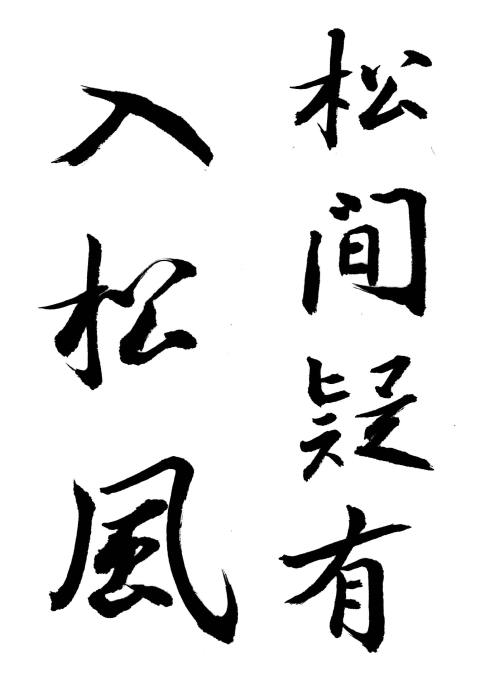 松間疑有
入松風